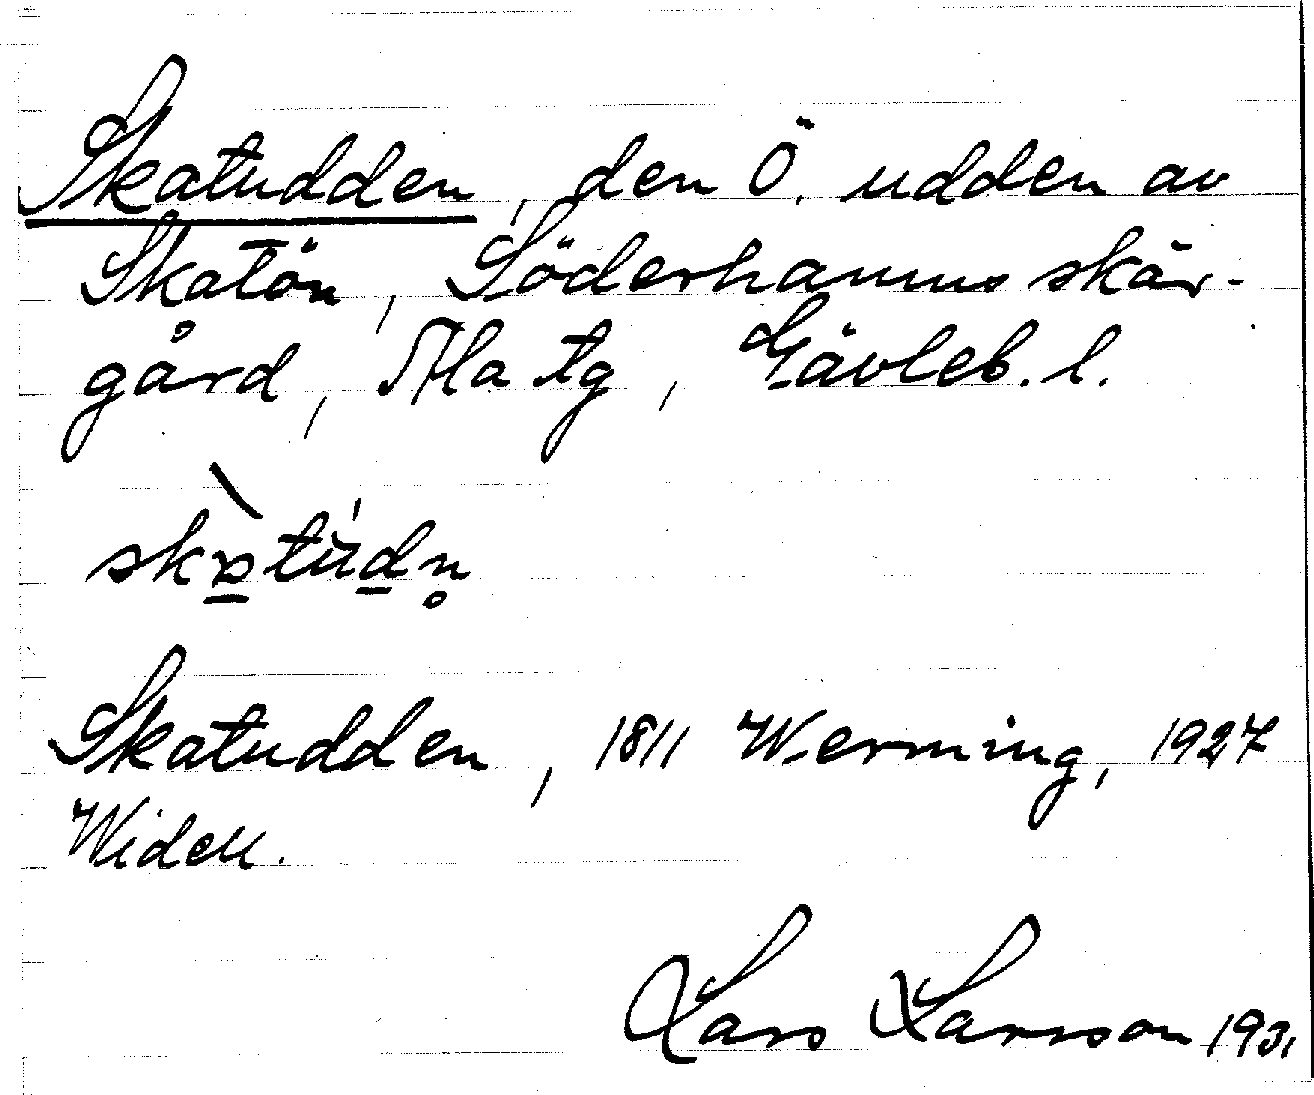 Skatudden, den Ö. udden av
Skatön, Söderhamns skär-
gård, Ala tg, Gävleb. l.
Skatudden, 1811 Werming, 1927
Widell.
Lars Larsson 193